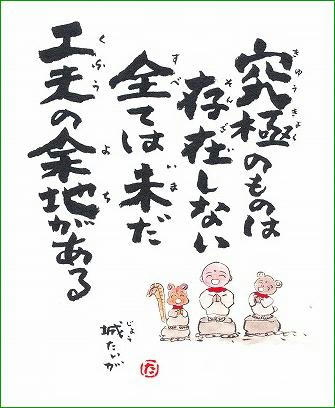 究極のものは
きゅうきょく
存在しない
そんざい
全ては未だ
すべ いま
工夫の余地がある
くふう よち
城たいが
じょう
た